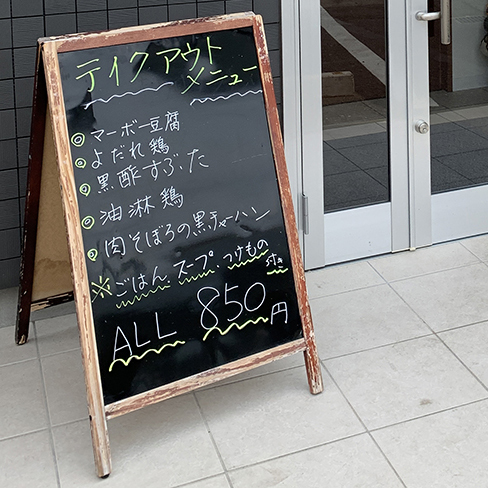 テイクアウト
メニュー
◎マーボー豆腐
◎よだれ鶏
◎黒酢すぶた
◎油淋鶏
◎肉そぼろの黒チャーハン
※ごはん、スープ、つけもの付き
ALL 850円